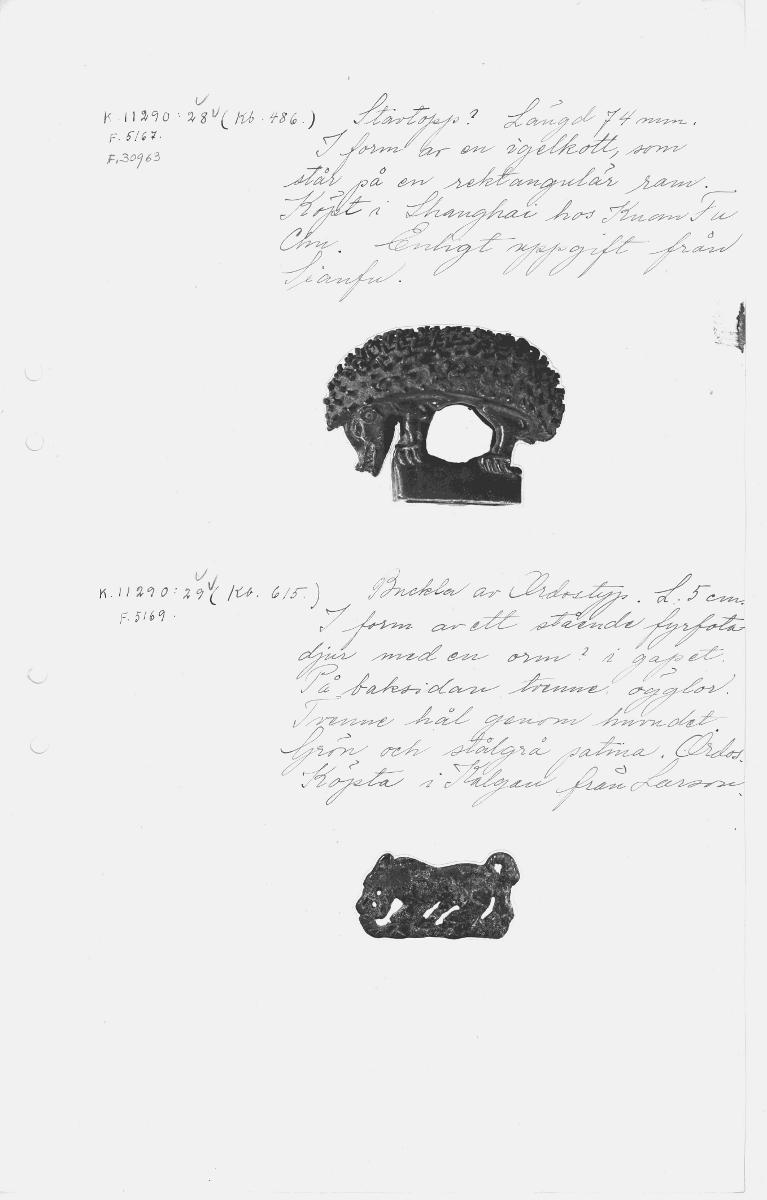 K. 11290:28 (Kb. 486.) Stavtopp? Längd 74 mm.
F. 5167.
F. 30963
I form av en igelkott, som
står på en rektangulär ram.
Köpt i Shanghai hos Kuan Fu
Chu. Enligt uppgift från
Sianfu.
K. 11290:29 (Kb. 615.) Bucklor av Ordostyp. L. 5 cm.
F. 5169.
I form av ett stående fyrfota
djur med en orm? i gapet.
På baksidan tvenne ögglor.
Tvenne hål genom huvudet.
Grön och stålgrå patina. Ordos.
Köpta i Kalgan från Larson.